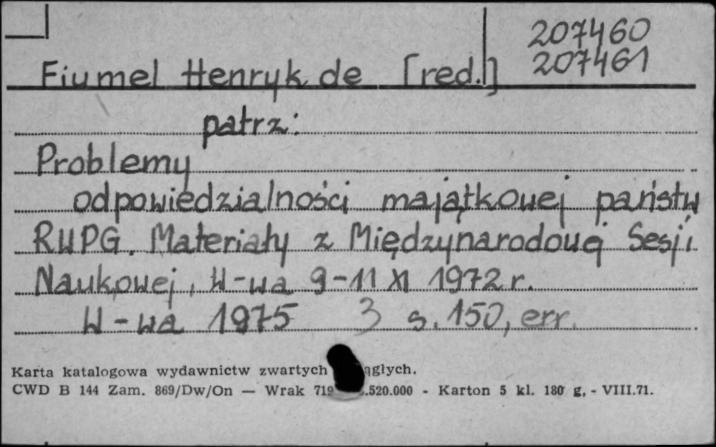 207460
207461
Fiumel Henryk de [red.]
patrz:
Problemy
odpowiedzialności majątkowej państw
RWPG. Materiały z Międzynarodowej Sesji
Naukowej, W-wa 9-11 XI 1972 r.
W-wa 1975 3 s. 150, err.
Karta katalogowa wydawnictw zwartych
CWD B 144 Zam. 869/Dw/On — Wrak 719 .520.000 - Karton 5 kl. 180 g, - VIII.71.